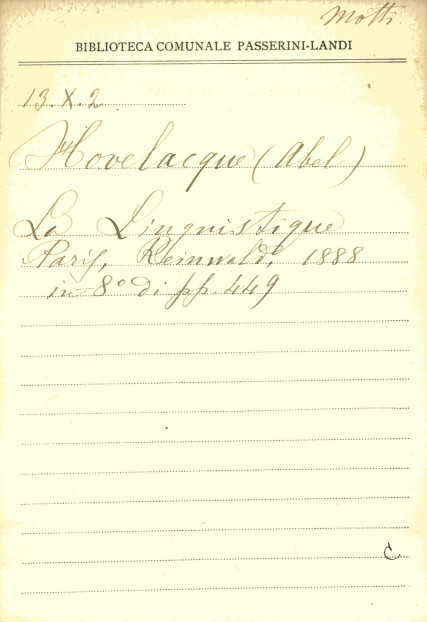 Motti
BIBLIOTECA COMUNALE PASSERINI-LANDI
13.X.2
Hovelacque (Abel)
La Linguistique
Paris, Reinwald, 1888
in-8º di pp. 449
C